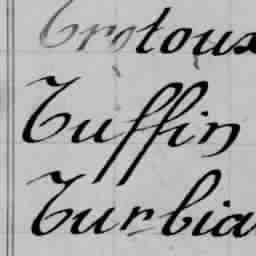 Trotoux
Tuffin
Turbia